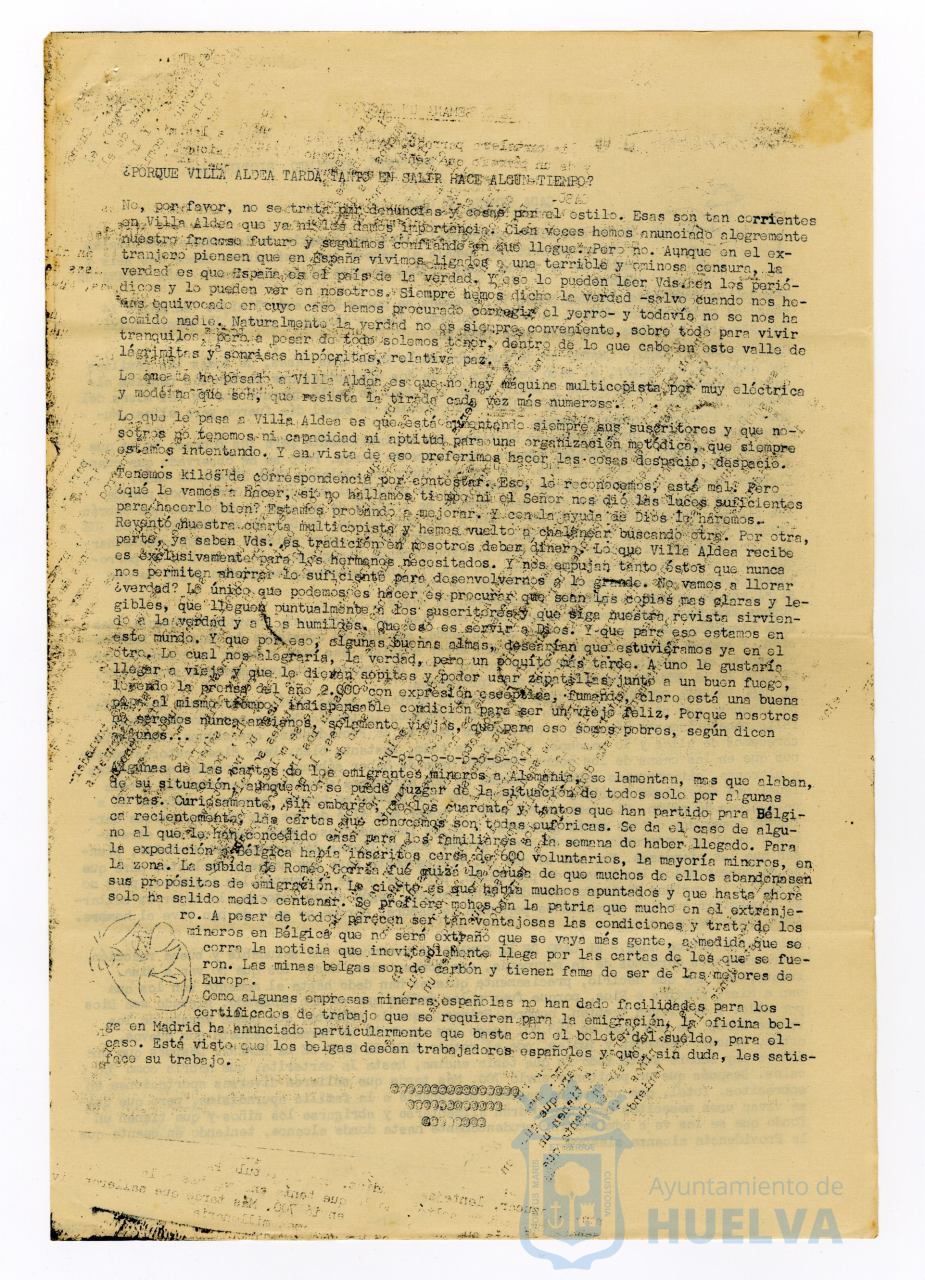 ¿PORQUE VILLA ALDEA TARDA TANTO EN SALIR HACE ALGUN TIEMPO?
No, por favor, no se trata por denuncias y cosas por el estilo. Esas son tan corrientes
en Villa Aldea que ya ni les damos importancia. Cien veces hemos anunciado alegremente
nuestro fracaso futuro y seguimos confiando en que llegue. Pero no. Aunque en el ex-
tranjero piensen que en España vivimos ligados a una terrible y ominosa censura, la
verdad es que España es el país de la verdad. Y eso lo pueden leer Vds. en los perió-
dicos y lo pueden ver en nosotros. Siempre hemos dicho la verdad -salvo cuando nos he-
mos equivocado en cuyo caso hemos procurado corregir el yerro- y todavía no se nos ha
comido nadie. Naturalmente la verdad no es siempre conveniente, sobre todo para vivir
tranquilos, pero a pesar de todo solemos tener, dentro de lo que cabe en este valle de
lágrimitas y sonrisas hipócritas, relativa paz.
Lo que le ha pasado a Villa Aldea es que no hay máquina multicopista por muy eléctrica
y moderna que sea, que resista la tirada cada vez más numerosa.
Lo que le pasa a Villa Aldea es que está aumentando siempre sus suscritores y que no-
sotros no tenemos ni capacidad ni aptitud para una organización metódica, que siempre
estamos intentando. Y en vista de eso preferimos hacer las cosas despacio, despacio.
Tenemos kilos de correspondencia por contestar. Eso, lo reconocemos, está mal. Pero
¿qué le vamos a hacer, si no hallamos tiempo ni el Señor nos dió las luces suficientes
para hacerlo bien? Estamos probando a mejorar. Y con la ayuda de Dios lo háremos.
Reventó nuestra cuarta multicopista y hemos vuelto a chalanear buscando otra. Por otra,
parte, ya saben Vds. es tradición en nosotros deber dinero. Lo que Villa Aldea recibe
es exclusivamente para los hermanos necesitados. Y nos empujan tanto éstos que nunca
nos permiten ahorrar lo suficiente para desenvolvernos a lo grande. No vamos a llorar
¿verdad? Lo único que podemos es hacer es procurar que sean las copias mas claras y le-
gibles, que lleguen puntualmente a los suscritores y que siga nuestra revista sirvien-
do a la verdad y a los humildes. Que eso es servir a Dios. Y que para eso estamos en
este mundo. Y que por eso, algunas buenas almas, desearían que estuviéramos ya en el
otro. Lo cual nos alegraría, la verdad, pero un poquito más tarde. A uno le gustaría
llegar a viejo y que le dieran sopitas y poder usar zapatillas junto a un buen fuego,
leyendo la prensa del año 2.000 con expresión escéptica, fumando, claro está una buena
pipa al mismo tiempo, indispensable condición para ser un viejo feliz. Porque nosotros
no seremos nunca ancianos, solamente viejos, que para eso somos pobres, según dicen
algunos...
-o-o-o-o-o-o-o-
Algunas de las cartas de los emigrantes mineros a Alemania, se lamentan, mas que alaban,
de su situación, aunque no se puede juzgar de la situación de todos solo por algunas
cartas. Curiosamente, sin embargo, de los cuarenta y tantos que han partido para Bélgi-
ca recientemente, las cartas que conocemos son todas eufóricas. Se da el caso de algu-
no al que le han concedido casa para los familiares a la semana de haber llegado. Para
la expedición a Bélgica había inscritos cerca de 600 voluntarios, la mayoría mineros, en
la zona. La subida de Romeo Gorría fué quizá la causa de que muchos de ellos abandonasen
sus propósitos de emigración. Lo cierto es que había muchos apuntados y que hasta ahora
solo ha salido medio centenar. Se prefiere menos en la patria que mucho en el extranje-
ro. A pesar de todo, parecen ser tan ventajosas las condiciones y trato de los
mineros en Bélgica que no será extraño que se vaya más gente, a medida que se
corra la noticia que inevitablemente llega por las cartas de los que se fue-
ron. Las minas belgas son de carbón y tienen fama de ser de las mejores de
Europa.
Como algunas empresas mineras españolas no han dado facilidades para los
certificados de trabajo que se requieren para la emigración, la oficina bel-
ga en Madrid ha anunciado particularmente que basta con el bolete del sueldo, para el
caso. Está visto que los belgas desean trabajadores españoles y que, sin duda, les satis-
face su trabajo.
Ayuntamiento de
HUELVA